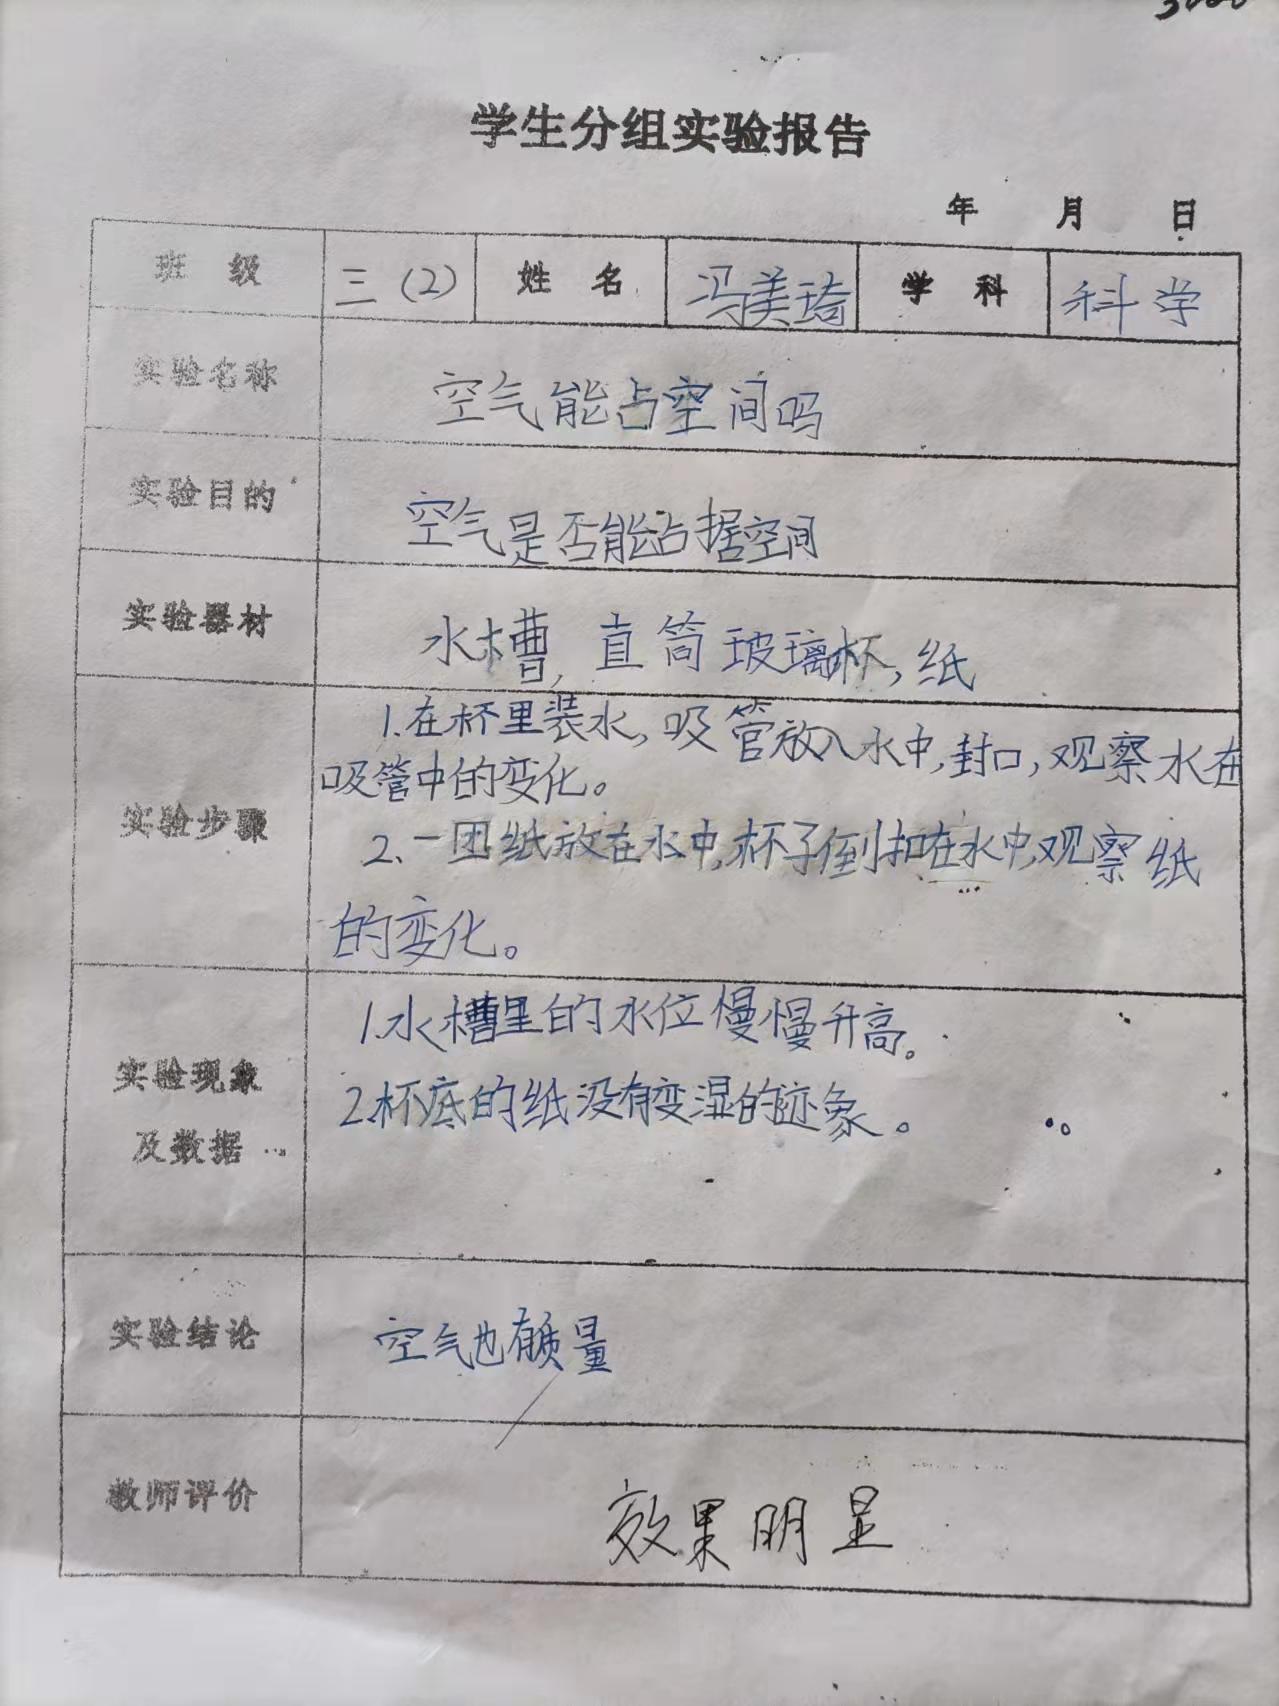 学生分组实验报告
年 月 日
班 级 三(2) 姓 名 冯美琦 学 科 科学
实验名称 空气能占空间吗
实验目的 空气是否能占据空间
实验器材 水槽,直筒玻璃杯,纸
1.在杯里装水,吸管放入水中,封口,观察水在
吸管中的变化。
实验步骤
2、一团纸放在水中,杯子倒扣在水中,观察纸
的变化。
1.水槽里的水位慢慢升高。
实验现象
及数据
2.杯底的纸没有变湿的迹象。
实验结论 空气也有质量
教师评价 效果明显